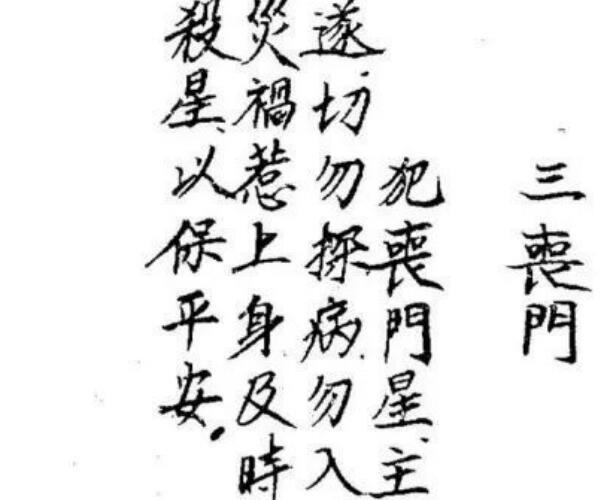 三喪門
犯喪門星、主
遂切勿探病、勿入
災禍惹上身及時
殺星、以保平安。